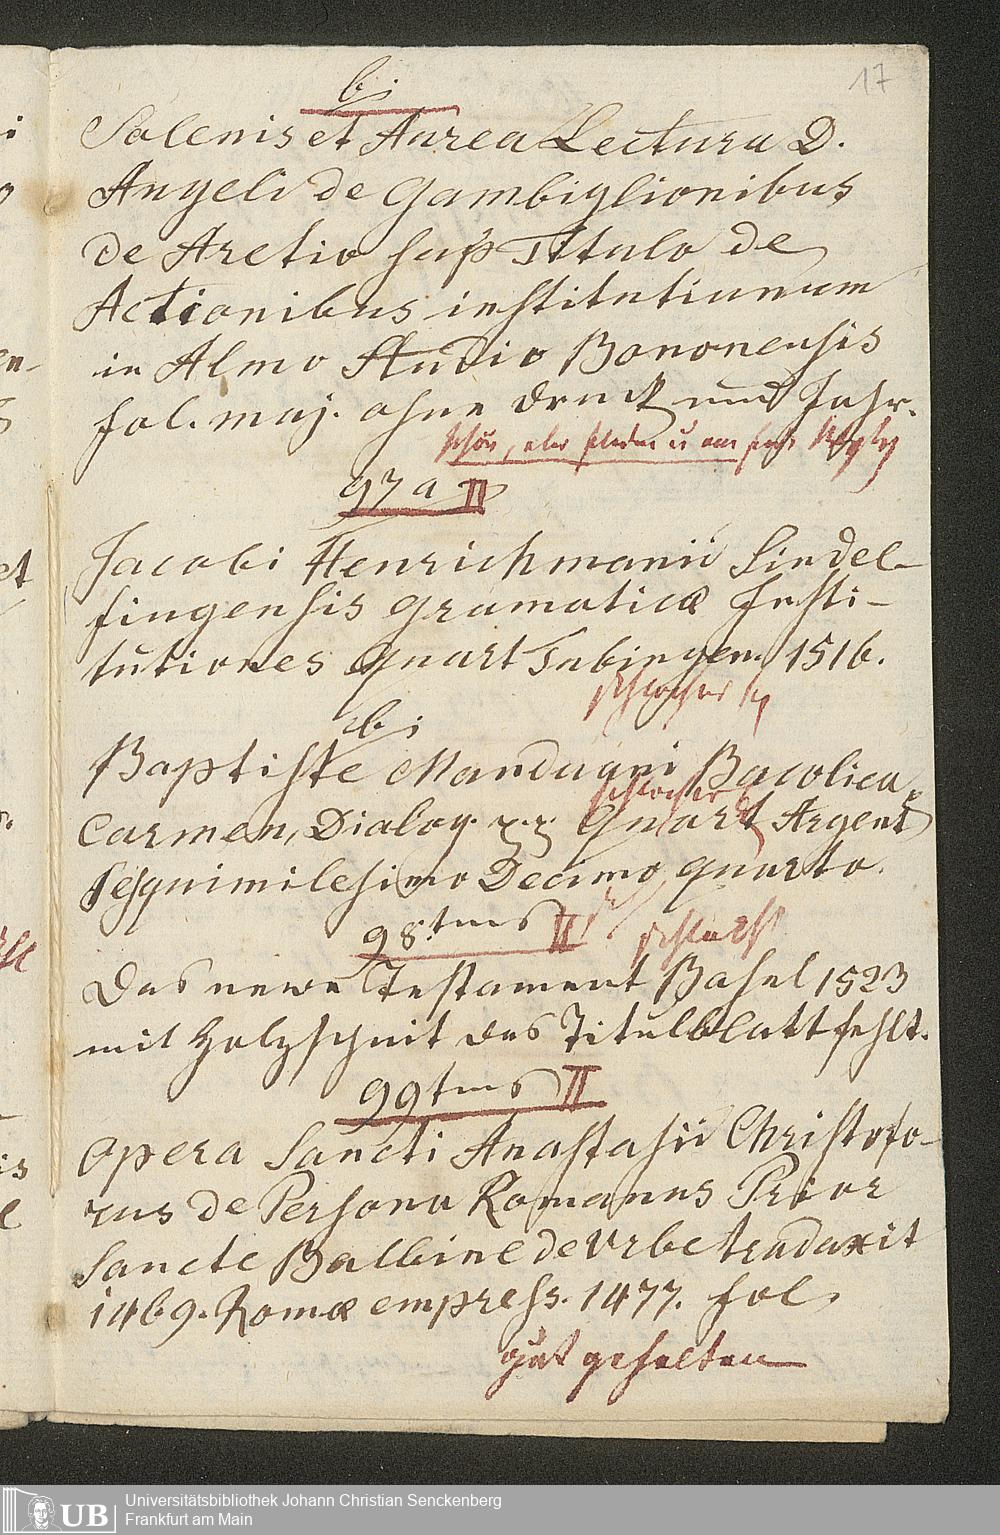 17
b;
Solenis et Aurea Lectura D.
Angeli de Gambiglionibus
de Aretio sup Titulo de
Actionibus institutionum
in Almo Studio Bononensis
fol. maj. ohne Druck und Jahr.
schön, aber
97 a II
Jacobi Henrichmanii Sindel-
fingensis Gramaticæ Insti-
tutiones Quart Tubingen 1516.
schlechter
b;
Baptiste Manduani Bucolica
schlechter
Carmen, Dialog. Quart Argent
Sesquimilesimo Decimo quarto.
98.tms II schlecht
Das newe Testament Basel 1523
mit Holzschnit das Titulblatt fehlt.
99tms II
Opera Sancti Anastasii Christofo-
rus de Persona Romanus Prior
Sancte Balbine de Vrbe traduxit
1469. Romæ empress. 1477. fol
gut gehalten
Universitätsbibliothek Johann Christian Senckenberg
UB Frankfurt am Main